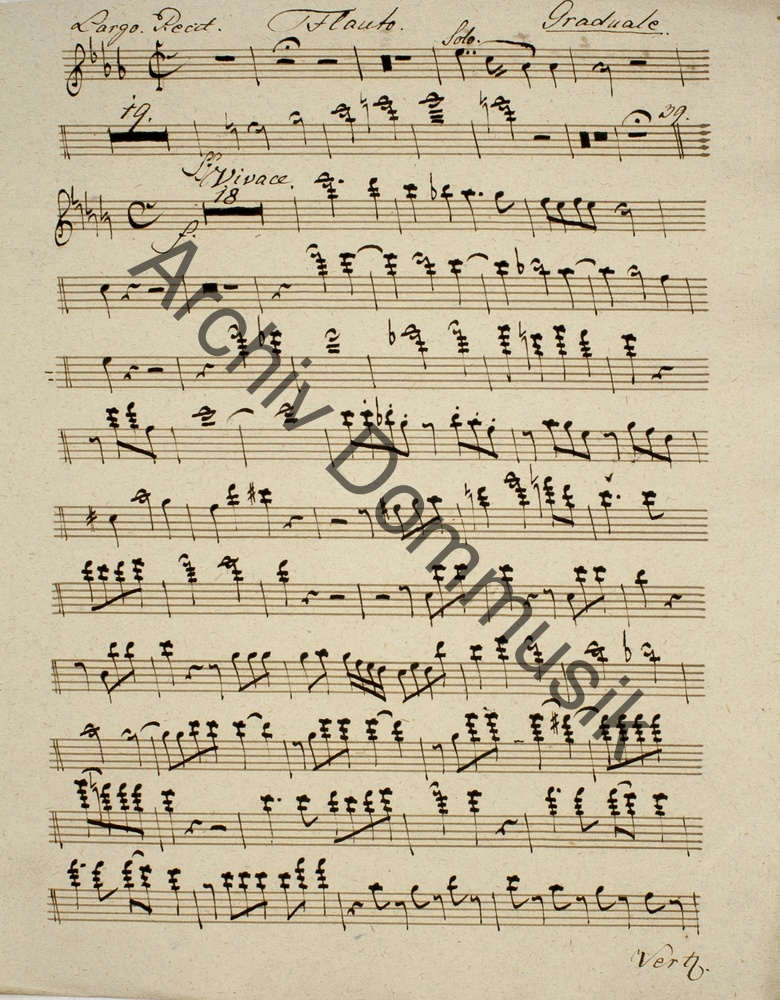 Largo. Recit. Flauto. Graduale.
Solo.
19. 39.
Vivace.
18
f.
Archiv Dommusik
Vert.